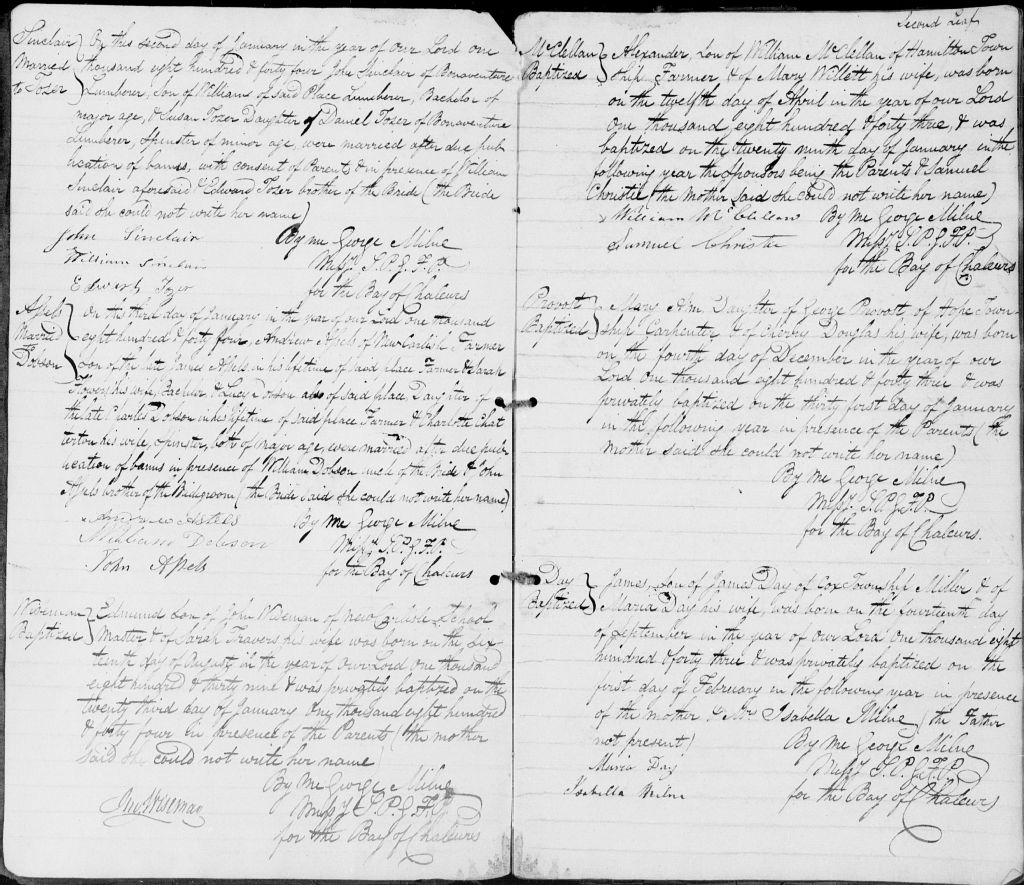 Sinclair
Married
to Tozer
On this second day of January in the year of our Lord one
thousand eight hundred & forty four John Sinclair of Bonaventure
Lumberer, Son of William of said Place Lumberer, Bachelor of
major age, & Susan Tozer Daughter of Daniel Tozer of Bonaventure
Lumberer, Spinster of minor age, were married after due pub
lication of banns, with consent of Parents & in presence of William
Sinclair aforesaid & Edward Tozer brother of the Bride (the Bride
said she could not write her name)
John Sinclair
By me George Milne
William Sinclair
Missy. S.P.G.F.P.
Edward Tozer
for the Bay of Chaleurs
Assels
Married
Dobson
On this third day of January in the year of our Lord one thousand
eight hundred & forty four, Andrew Assels of New Carlisle Farmer
Son of the late James Assels in his lifetime of said place Farmer & Sarah
Flowers his wife, Bachelor & Lucy Dobson also of said place Daughter of
the late Charles Dobson in his lifetime of said place Farmer & Charlotte Chat
terton his wife, spinster, both of major age, were married after due pub
lication of banns in presence of William Dobson uncle of the Bride & John
Assels brother of the Bridegroom (the Bride said she could not write her name)
Andrew Assels
By me George Milne
William Dobson
Missy. S.P.G.F.P.
John Assels
for the Bay of Chaleurs
Wiseman
Baptized
Edmund Son of John Wiseman of New Carlisle School
Master & of Sarah Travers his wife was born on the six
teenth day of August in the year of our Lord one thousand
eight hundred & thirty nine & was privately baptized on the
twenty third day of January one thousand eight hundred
& forty four in presence of the Parents (the mother
said she could not write her name)
By me George Milne
Jno. Wiseman
Missy. S.P.G.F.P.
for the Bay of Chaleurs
Second Leaf
McClellan
Baptized
Alexander, Son of William McClellan of Hamilton Town
ship Farmer & of Mary Willett his wife, was born
on the twelfth day of April in the year of our Lord
one thousand eight hundred & forty three, & was
baptized on the twenty ninth day of January in the
following year the Sponsors being the Parents & Samuel
Christie (the Mother said she could not write her name)
William McClellan
By Me George Milne
Samuel Christie
Missy. S.P.G.F.P.
for the Bay of Chaleurs
Provost
Baptized
Mary Ann, Daughter of George Provost, of Hope Town-
ship Carpenter & of Derby Douglas his wife, was born
on the fourth day of December in the year of our
Lord one thousand eight hundred & forty three & was
privately baptized on the thirty first day of January
in the following year in presence of the Parents (the
mother said she could not write her name)
By Me George Milne
Missy. S.P.G.F.P.
for the Bay of Chaleurs.
Day
Baptized
James, Son of James Day of Cox Township Miller & of
Maria Day his wife, was born on the fourteenth day
of September in the year of our Lord one thousand eight
hundred & forty three & was privately baptized on the
first day of February in the following year in presence
of the mother & Mrs Isabella Milne (the Father
not present)
By Me George Milne
Maria Day
Missy. S.P.G.F.P.
Isabella Milne
for the Bay of Chaleurs